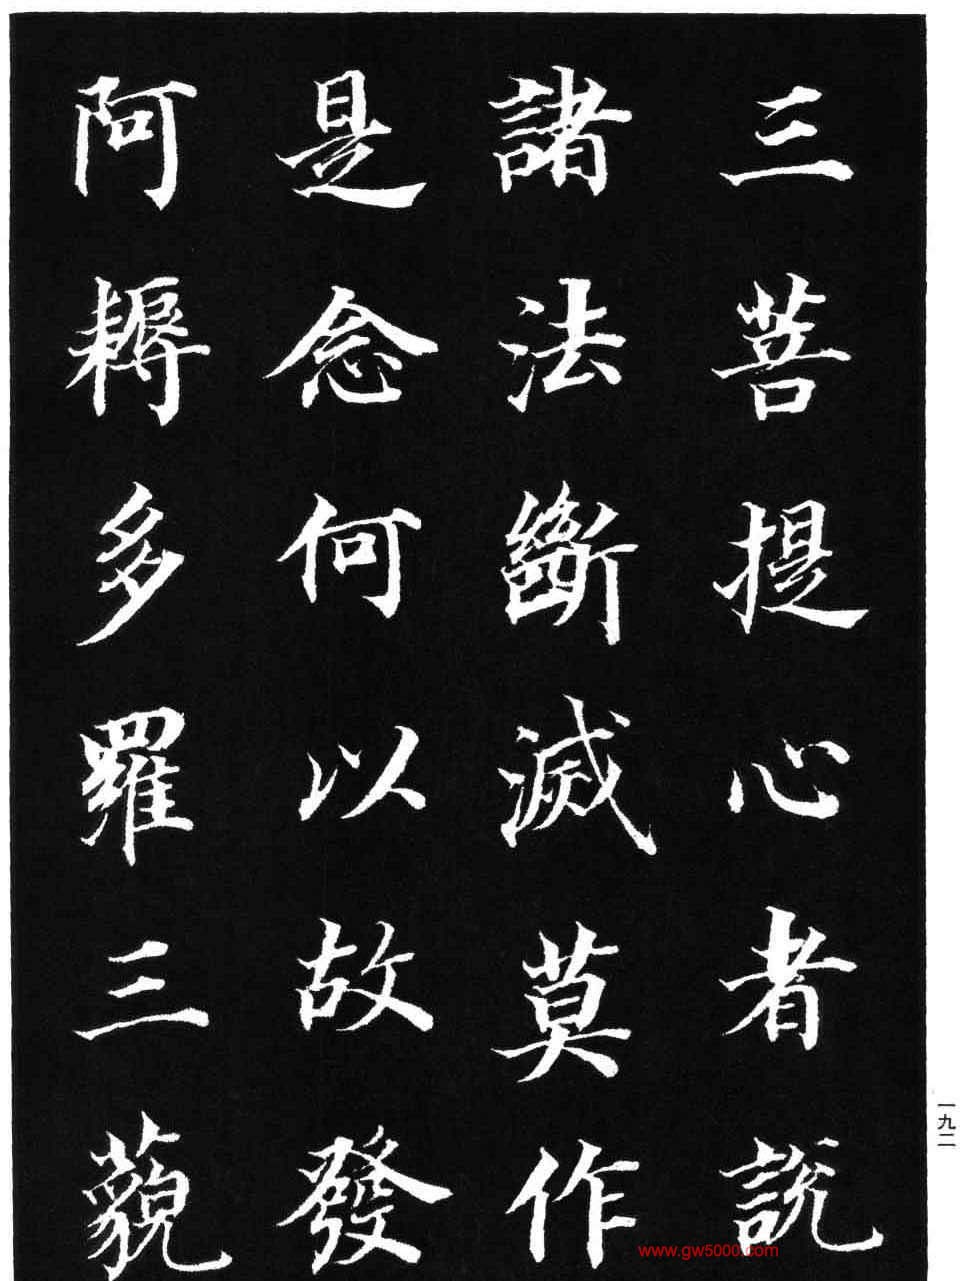 三菩提心者說
諸法斷滅莫作
是念何以故發
阿耨多羅三藐
一九二
www.gw5000.com